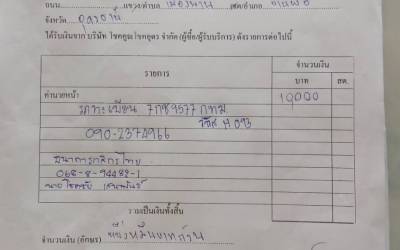 ถนน แขวง/ตำบล เมืองพาน เขต/อำเภอ บ้านผือ
จังหวัด อุดรธานี
ได้รับเงินจาก บริษัท โชคคูณโชคอุดร จำกัด (ผู้ซื้อ/ผู้รับบริการ) ดังรายการต่อไปนี้
รายการ จำนวนเงิน
บาท สต.
ค่านายหน้า 10000
ทะเบียน 7กษ9577 กทม.
รหัส H 093
090-2374966
ธนาคารกสิกรไทย
068-8-94482-1
นาย
รวมเป็นเงินทั้งสิ้น
จำนวนเงิน (อักษร) หนึ่งหมื่นบาทถ้วน